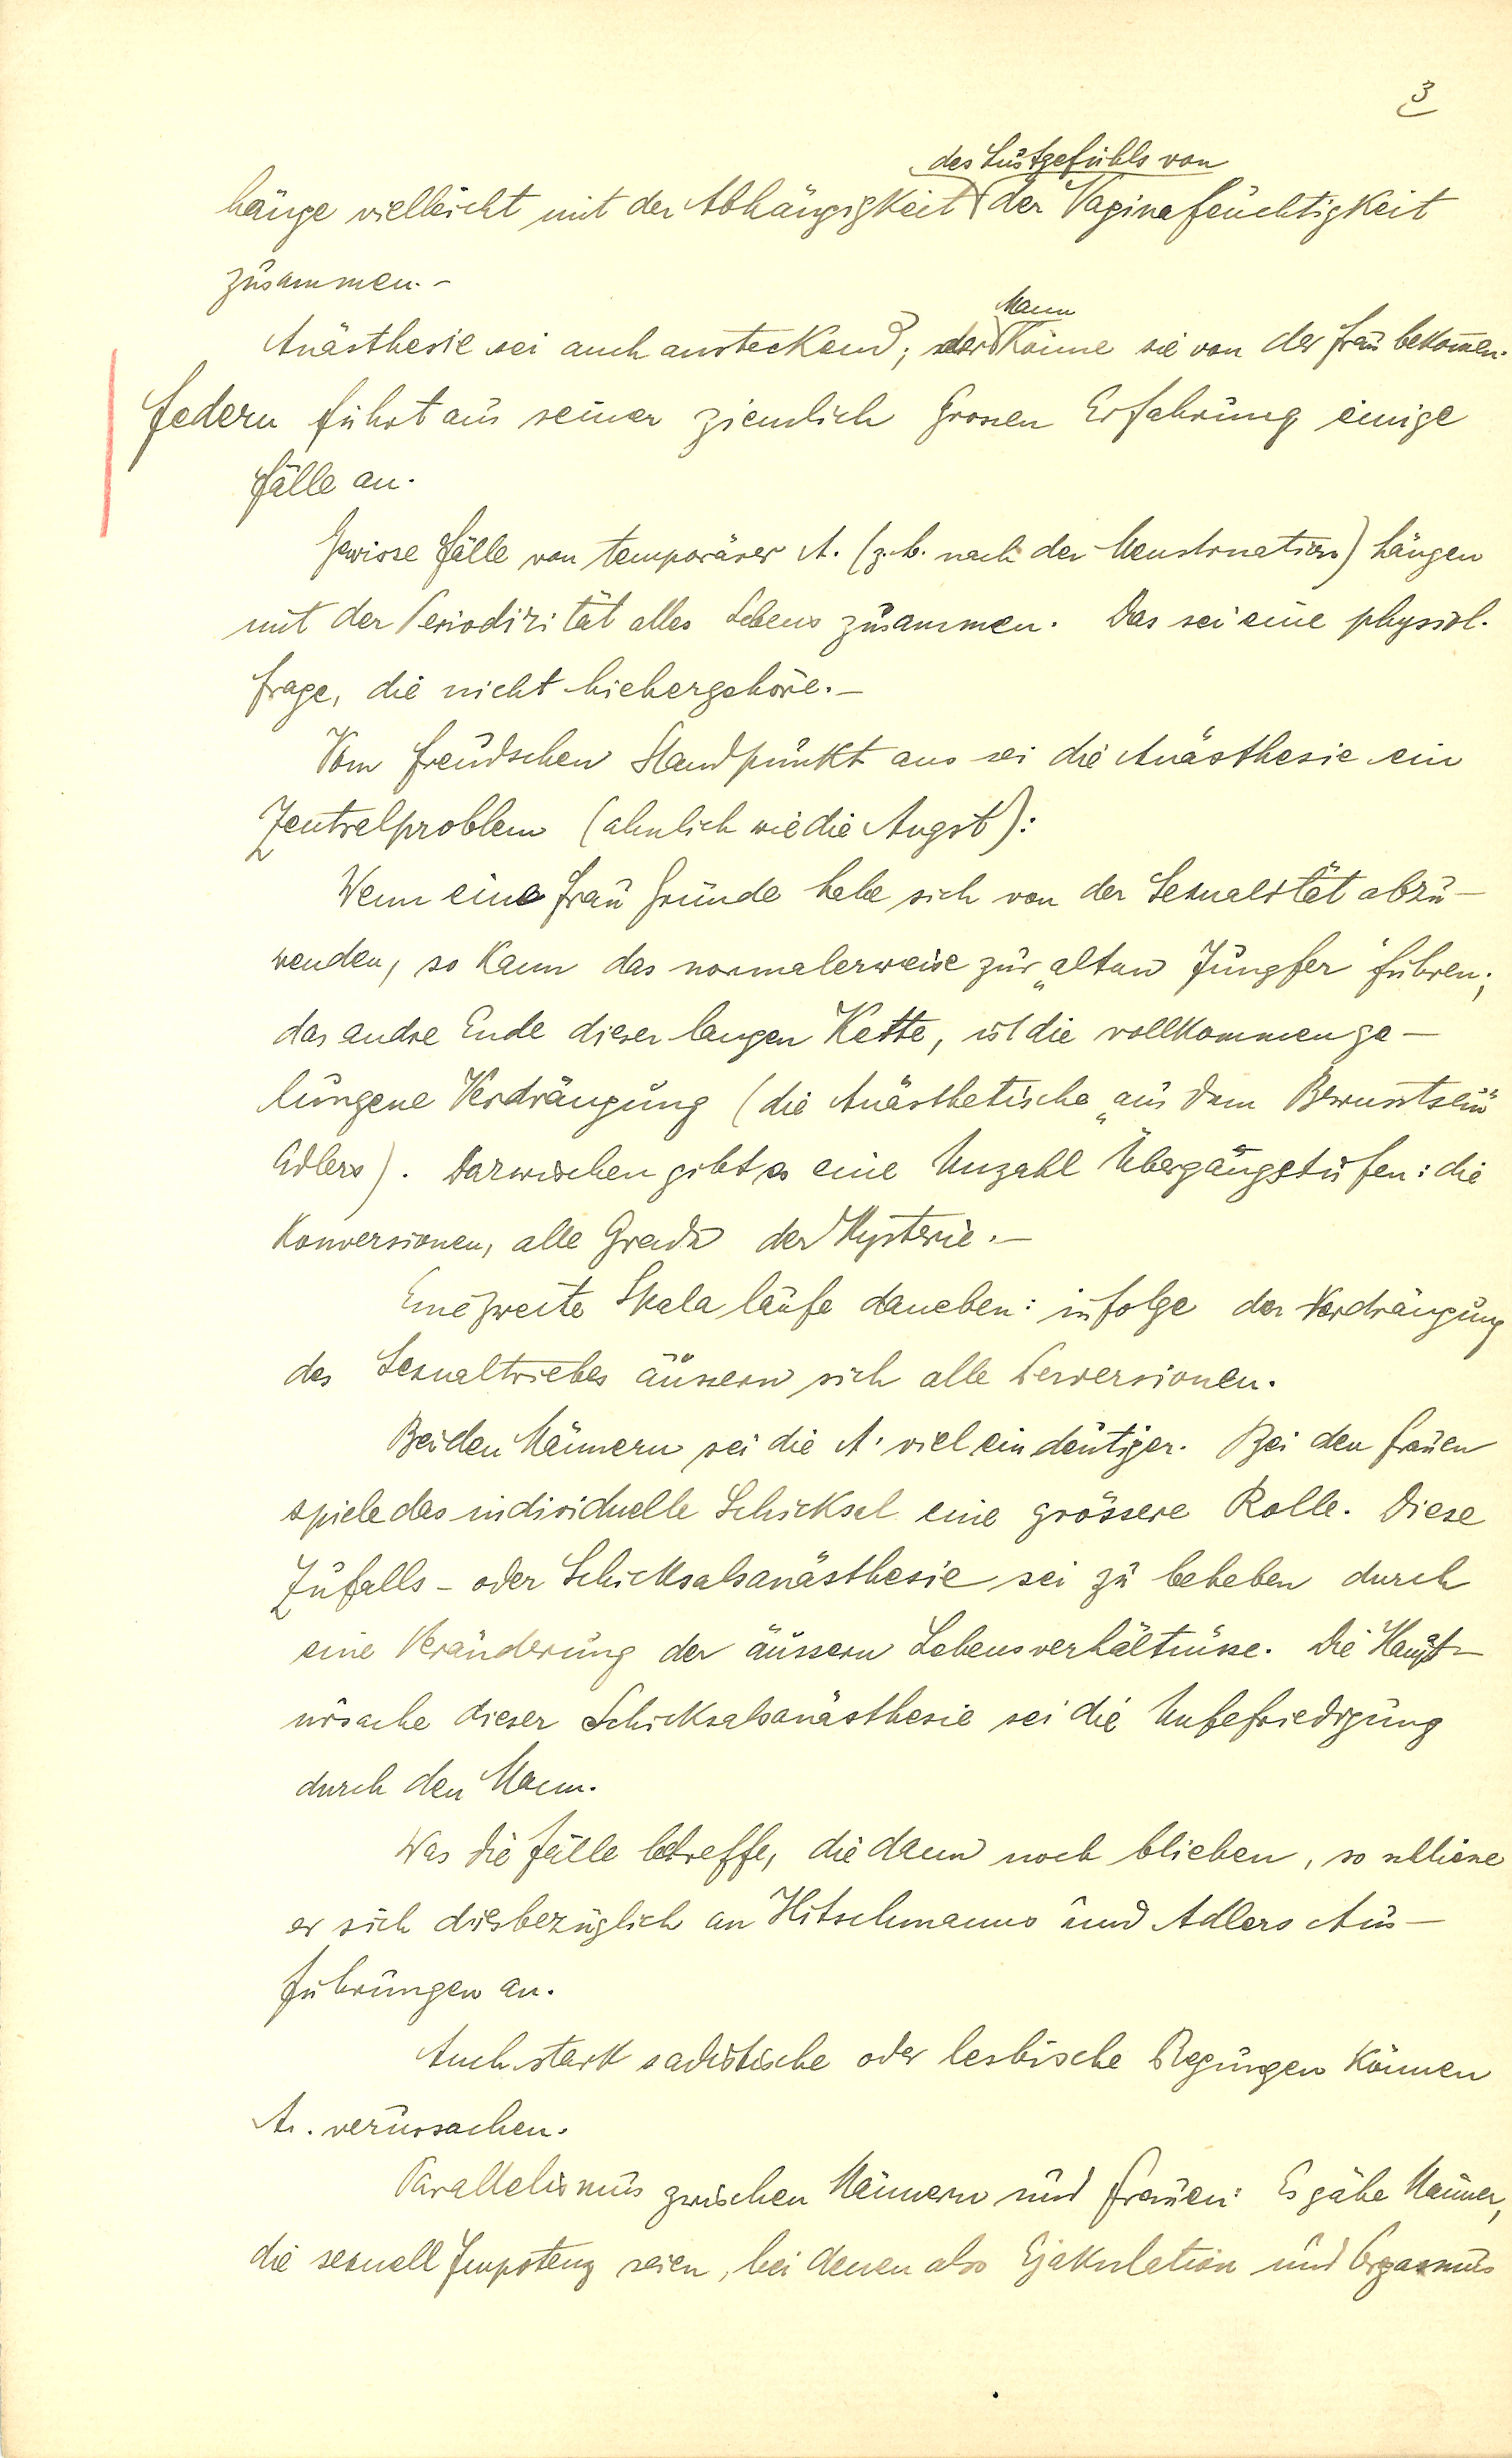 3
des Lustgefühls von
hänge vielleicht mit der Abhängigkeit der Vaginafeuchtigkeit
zusammen.-
Mann
Anästhesie sei auch ansteckend; der könne sie von der Frau bekommen.
Federn führt aus seiner ziemlich grossen Erfahrung einige
Fälle an.
Gewisse Fälle von temporärer A. (z.b. nach der Menstruation) hängen
mit der Periodizität alles Lebens zusammen. Das sei eine physiol.
Frage, die nicht hiehergehöre.-
Vom Freudschen Standpunkt aus sei die Anästhesie ein
Zentralproblem (ahnlich wie die Angst):
Wenn eine Frau Gründe habe sich von der Sexualität abzu-
wenden, so kann das normalerweise zur „alten Jungfer" führen;
das andre Ende dieser langen Kette, ist die vollkommen ge-
lungene Verdrängung (die Anästhetische „aus dem Bewusstsein"
Adlers). Dazwischen gibt es eine Unzahl Übergangstufen: die
Konversionen, alle Grade der Hysterie.-
Eine zweite Skala laufe daneben: infolge der Verdrängung
des Sexualtriebes äussern sich alle Perversionen.
Bei den Männern sei die A. viel eindeutiger. Bei den Frauen
spiele das individuelle Schicksal eine grössere Rolle. Diese
Zufalls- oder Schicksalsanästhesie sei zu beheben durch
eine Veränderung der äussern Lebensverhältnisse. Die Haupt-
ursache dieser Schicksalsanästhesie sei die Unbefriedigung
durch den Mann.
Was die Fälle betreffe, die dann noch blieben, so schliesse
er sich diesbezüglich an Hitschmanns und Adlers Aus-
führungen an.
Auch stark sadistische oder lesbische Regungen können
A. verursachen.
Parallelismus zwischen Männern und Frauen: Es gäbe Männer,
die sexuell Impotenz seien, bei denen also Ejakulation und Orgasmus